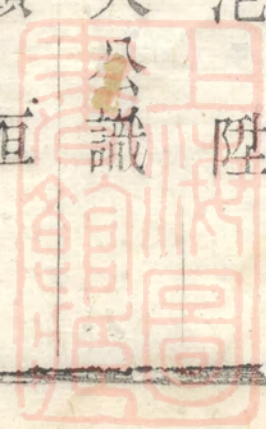 陞
公識
上海圖
書館藏